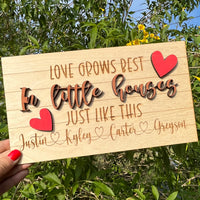 LOVE GROWS BEST
In little houses
JUST LIKE THIS
Justin Kyley Carter Greyson